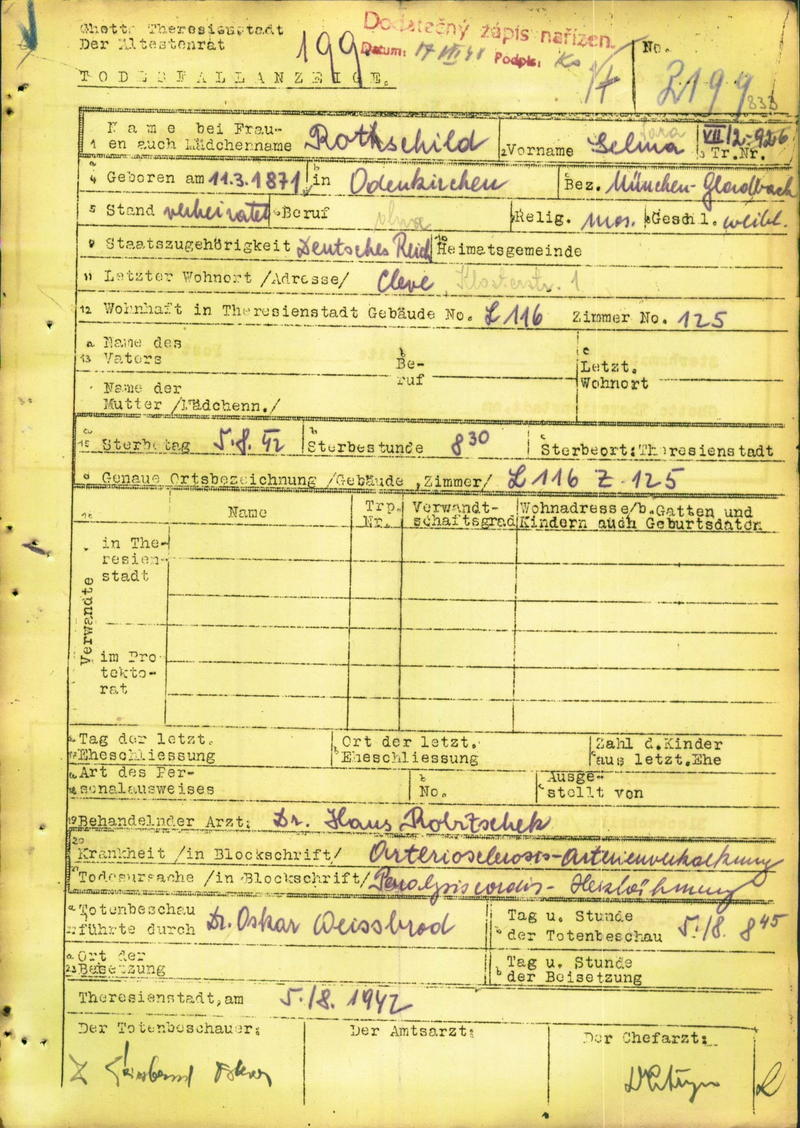 Ghetto Theresienstadt
Der Ältestenrat
TODESFALLANZEIGE.
199
Dodatečný zápis nařízen.
Datum: 17 VIII 41 Podpis:
No. 2199
1 Name bei Frau-
en auch Mädchenname Rothschild 2 Vorname Selma Sara 3 Tr.Nr. VII/2-926
4 Geboren am 11.3.1871 in Odenkirchen Bez. München-Gladbach
5 Stand verheiratet Beruf ohne Relig. mos. Geschl. weibl.
9 Staatszugehörigkeit Deutsches Reich 10 Heimatsgemeinde
11 Letzter Wohnort /Adresse/ Cleve, Klosterstr. 1
12 Wohnhaft in Theresienstadt Gebäude No. L 116 Zimmer No. 125
a Name des b c
13 Vaters Be- Letzt.
ruf Wohnort
Name der
Mutter /Mädchenn./
15 Sterbetag 5.8.42 b Sterbestunde 8 30 c Sterbeort:Theresienstadt
d Genaue Ortsbezeichnung /Gebäude ,Zimmer/ L 116 Z.125
Name Trp. Nr. Verwandt-
schaftsgrad Wohnadresse/b.Gatten und
Kindern auch Geburtsdaten
Verwandte
in The-
resien-
stadt
im Pro-
tekto-
rat
Tag der letzt. Ort der letzt. Zahl d.Kinder
Eheschliessung Eheschliessung aus letzt.Ehe
Art des Per- b Ausge-
sonalausweises No. stellt von
19 Behandelnder Arzt: Dr. Hans Robitschek
20
Krankheit /in Blockschrift/ Arteriosclerosis-Arterienverkalkung
Todesursache /in Blockschrift/ Paralysis cordis - Herzlähmung
a Totenbeschau Tag u. Stunde
führte durch Dr. Oskar Weissbrod b der Totenbeschau 5./8. 8 45
a Ort der Tag u. Stunde
23 Beisetzung b der Beisetzung
Theresienstadt,am 5./8. 1942
Der Totenbeschauer: Der Amtsarzt: Der Chefarzt: